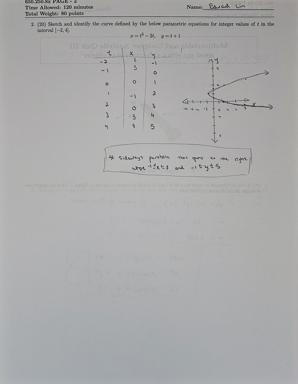 650.250.Su PAGE - 2
Time Allowed: 120 minutes
Name:
Total Weight: 80 points
2. (20) Sketch and identify the curve defined by the below parametric equations for integer values of t in the
interval [-2, 4].
x = t² - 2t, y = t + 1
t x y
-2 -1
-1 3 0
0 0 1
1 -1 2
2 0 3
3 3 4
4 8 5
A sideways parabola that goes to the right
where and -1 ≤ y ≤ 5